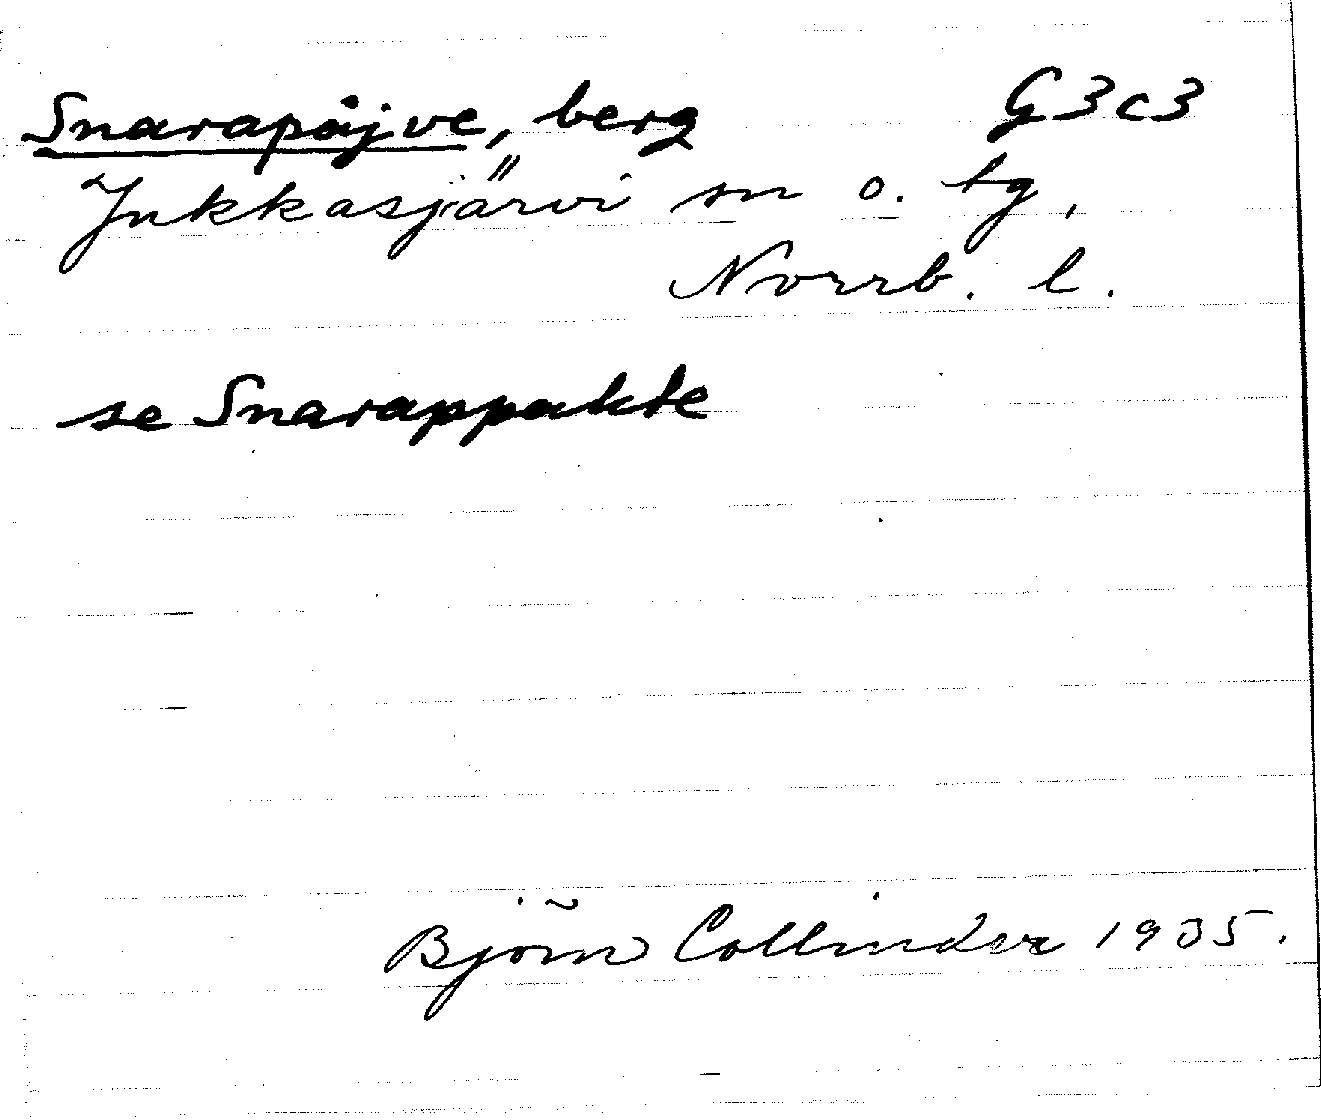 Snarapåjve, berg G3c3
Jukkasjärvi sn o. tg,
Norrb. l.
se Snarappakte
Björn Collinder 1935.